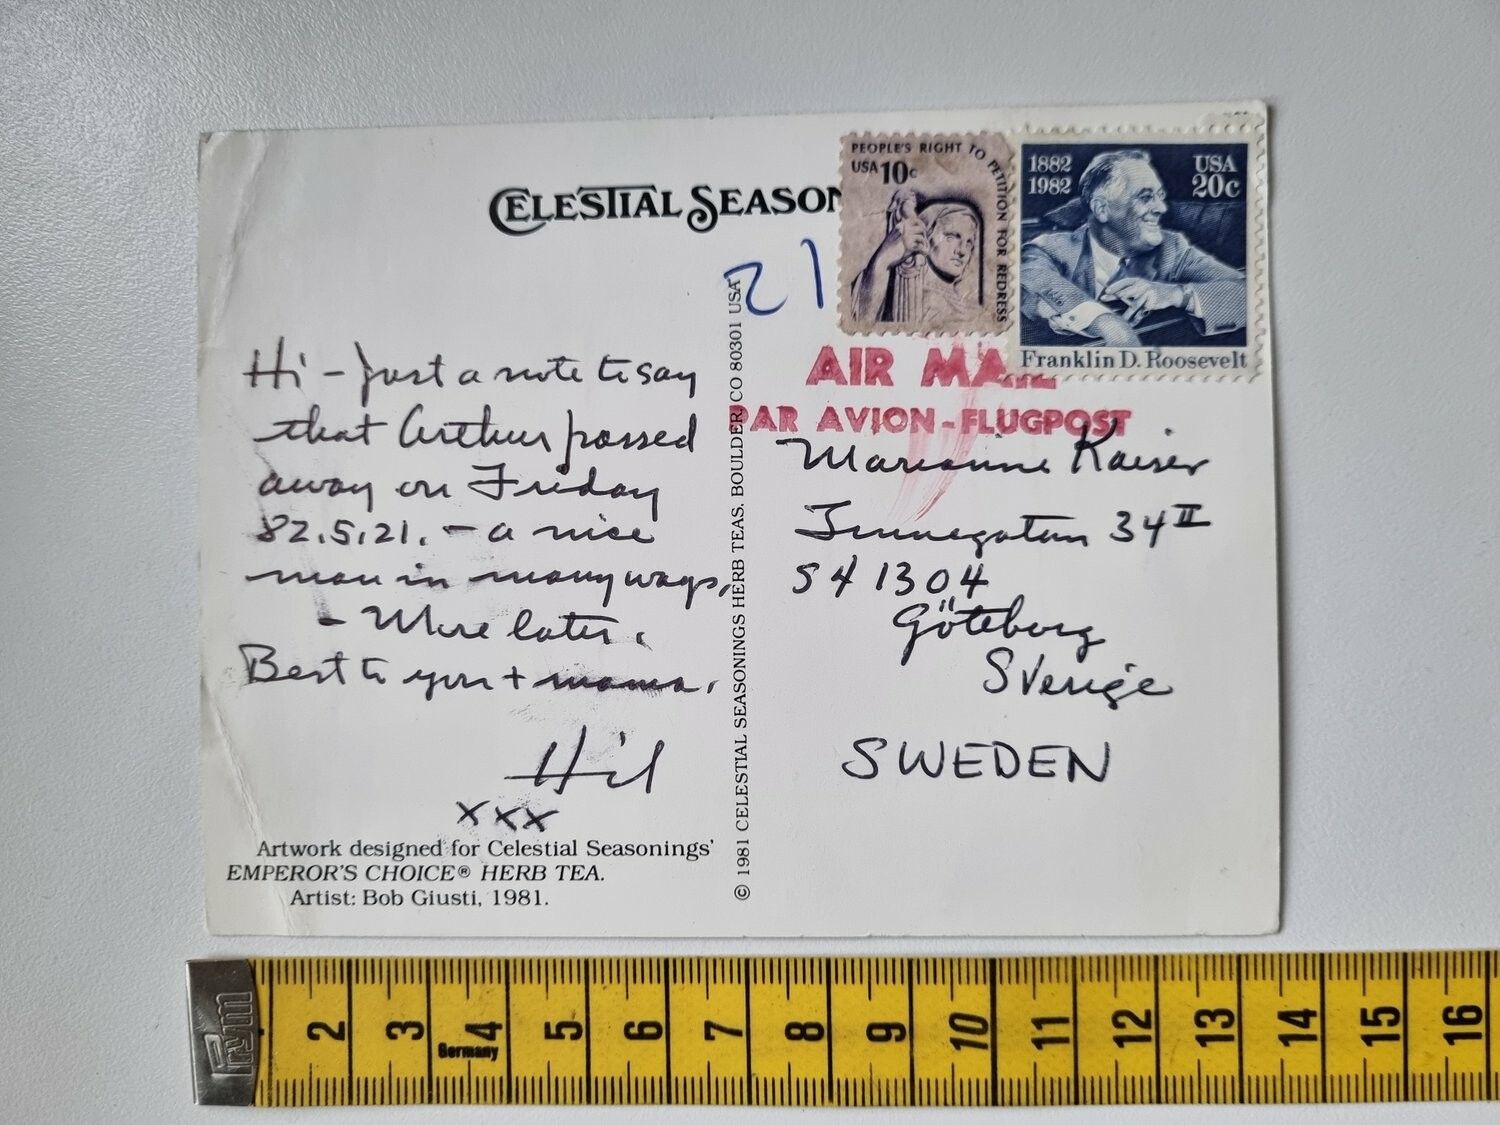 CELESTIAL SEASON
PEOPLE'S RIGHT TO PETITION FOR REDRESS
USA 10c
1882
1982
USA
20c
Franklin D. Roosevelt
21
AIR MAIL
PAR AVION-FLUGPOST
Hi - Just a note to say
that Arthur passed
away on Friday
82.5.21. - a nice
man in many ways.
- More later.
Best to you + mama.
Hil
xxx
Artwork designed for Celestial Seasonings'
EMPEROR'S CHOICE® HERB TEA.
Artist: Bob Giusti, 1981.
© 1981 CELESTIAL SEASONINGS HERB TEAS, BOULDER, CO 80301 USA
Marianne Kaiser
34 II
S 41304
Göteborg
Sverige
SWEDEN
Prym
2 3 4 5 6 7 8 9 10 11 12 13 14 15 16
Germany